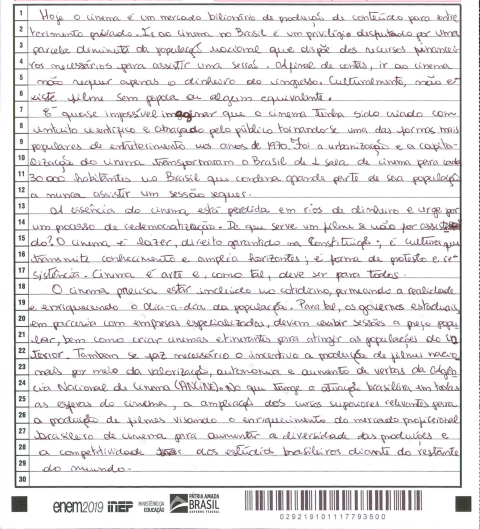 1 Hoje o cinema é um mercado bilionário de produção de conteúdo para entre
2 tenimento privado. Ir ao cinema no Brasil é um privilégio disputado por uma
3 parcela diminuta da população nacional que dispõe dos recursos financei
4 ros necessários para assistir uma sessão. Afinal de contas, ir ao cinema
5 não requer apenas o dinheiro do ingresso. Culturalmente, não e-
6 xiste filme sem pipoca ou algum equivalente.
7 É quase impossível imaginar que o cinema tenha sido criado com
8 intuito científico e abraçado pelo público tornando-se uma das formas mais
9 populares de entretenimento nos anos de 1970. Foi a urbanização e a capita-
10 lização do cinema transformaram o Brasil de 1 sala de cinema para cada
11 30000 habitantes no Brasil que condena grande parte de sua população
12 a nunca assistir um sessão sequer.
13 A essência do cinema está perdida em rios de dinheiro e urge por
14 um processo de redemocratização. De que serve um filme se não for assisti
15 do? O cinema é lazer, direito garantido na Constituição; é cultura que
16 transmite conhecimento e amplia horizontes; é forma de protesto e re-
17 sistência. Cinema é arte e, como tal, deve ser para todos.
18 O cinema precisa estar incluído no cotidiano, permeando a realidade
19 e enriquecendo o dia-a-dia da população. Para tal, os governos estaduais,
20 em parceria com empresas especializadas, devem sessões a preço popu-
21 lar, bem como criar cinemas itinerantes para atingir as populações do in
22 terior. Também se faz necessário o incentivo a produção de filmes nacio
23 nais por meio da valorização, autonomia e aumento de verbas da Agên
24 cia Nacional de Cinema (ANCINE). No que tange a atuação brasileira em todas
25 as esferas do cinema, a ampliação dos cursos superiores relevantes para
26 a produção de filmes visando o enriquecimento do mercado profissional
27 brasileiro de cinema para aumentar a diversidade das produções e
28 a competitividade dos estúdios brasileiros diante do restante
29 do mundo.
30
enem2019 inep MINISTÉRIO DA EDUCAÇÃO PÁTRIA AMADA BRASIL GOVERNO FEDERAL
029219101117793500